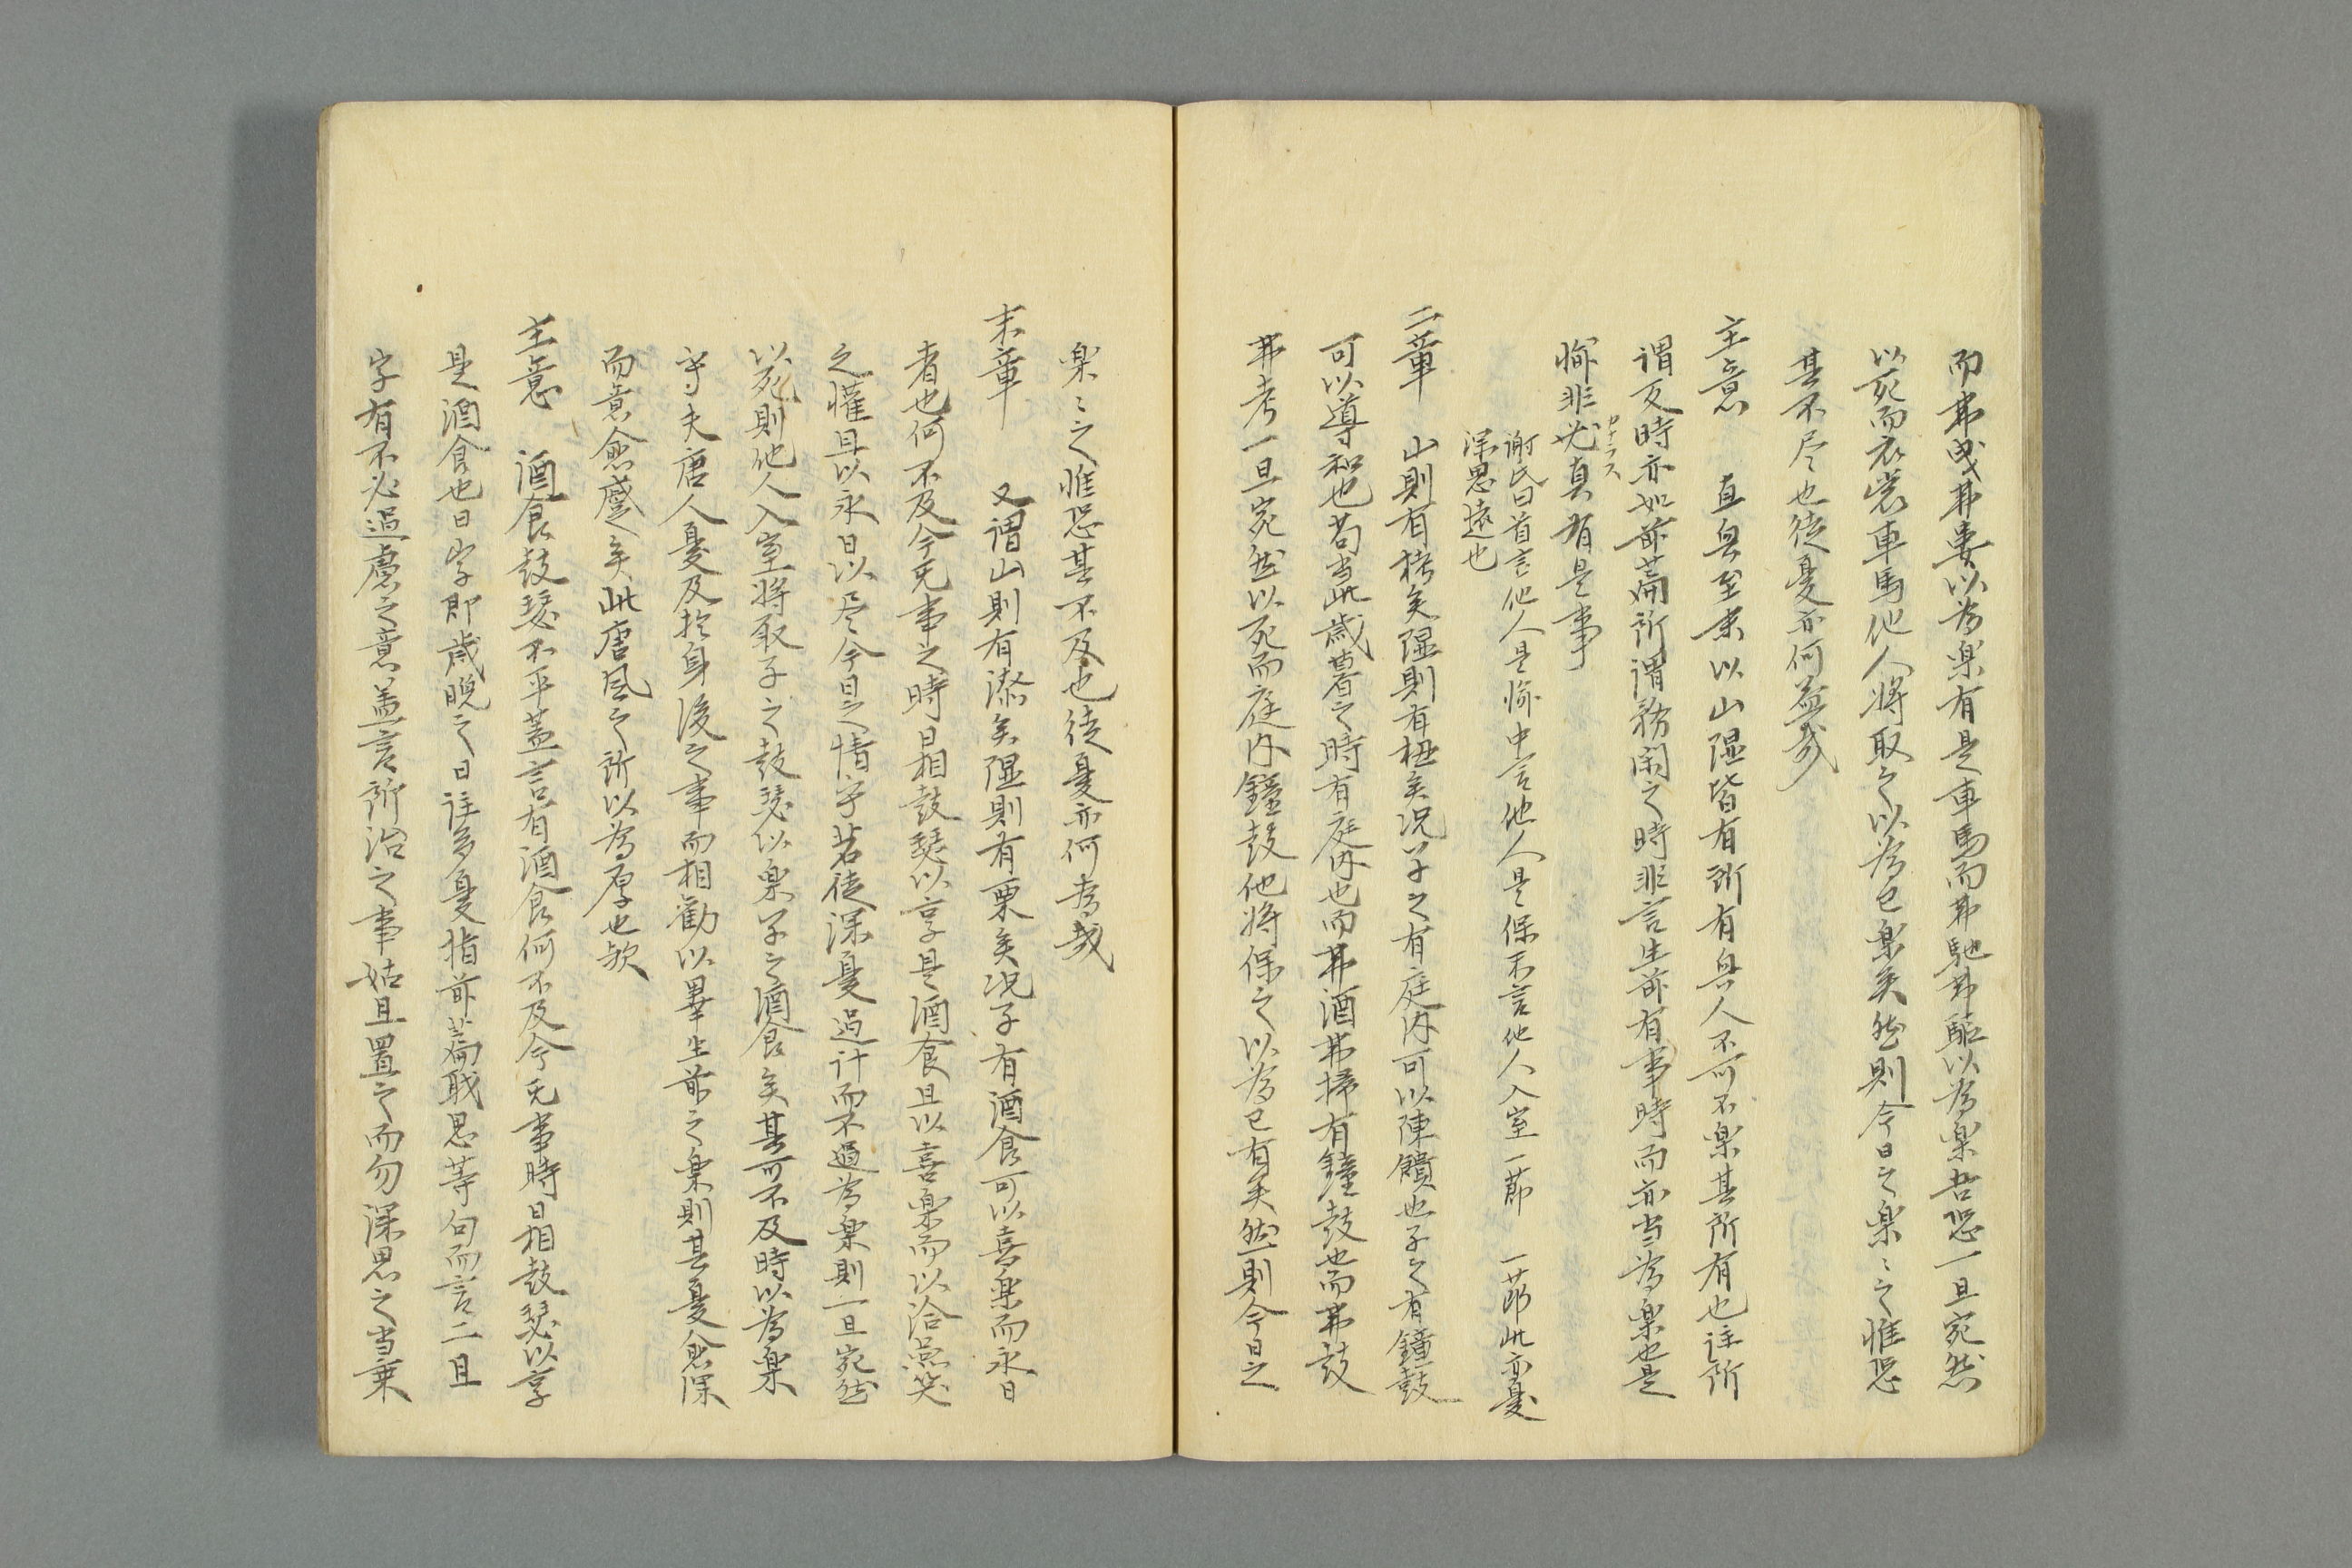 而弗曳弗婁以為楽有是車馬而弗馳弗駆以為楽吾恐一旦宛然
以死而衣裳車馬他人将取之以為已楽矣然則今日之楽〻之惟恐
其不尽也徒憂亦何益哉
主意　直自至末以山隰皆有所有与人不可不楽其所有也註所
謂及時亦如前篇所謂務閑之時非言生前有事時而亦当為楽也是
愉非必カナラス真有是事
謝氏曰首言他人是愉中言他人是保末言他人入室一節　一節此亦憂
深思遠也
二章　山則有栲矣隰則有杻矣況子之有庭内可以陳饋也子之有鐘鼓
可以導和也苟当此歳暮之時有庭内也而弗洒弗掃有鐘鼓也而弗鼓
弗考一旦宛然以死而庭内鐘鼓他将保之以為已有矣然則今日之
楽〻之惟恐其不及也徒憂亦何為哉
末章　又謂山則有漆矣隰則有栗矣況子有酒食可以喜楽而永日
者也何不及今无事之時日相鼓瑟以享是酒食且以喜楽而以洽燕笑
之懽且以永日以尽今日之情乎若徒深憂過計而不過為楽則一旦宛然
以死則他人入室将取子之鼓瑟以楽子之酒食矣其可不及時以為楽
乎夫唐人憂及於身後之事而相勧以畢生前之楽則其憂愈深
而意愈蹙矣此唐風之所以為厚也歟
主意　酒食鼓瑟不平蓋言有酒食何不及今无事時日相鼓瑟以享
是酒食也日字即歳晩之日註多憂指前篇職思等句而言二且
字有不必過慮之意盖言所治之事姑且置之而勿深思之当乗